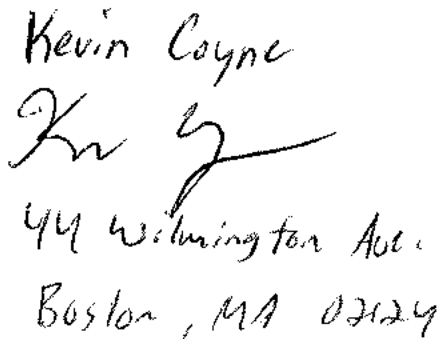 Kevin Coyne
44 Wilmington Ave.
Boston, MA 02124